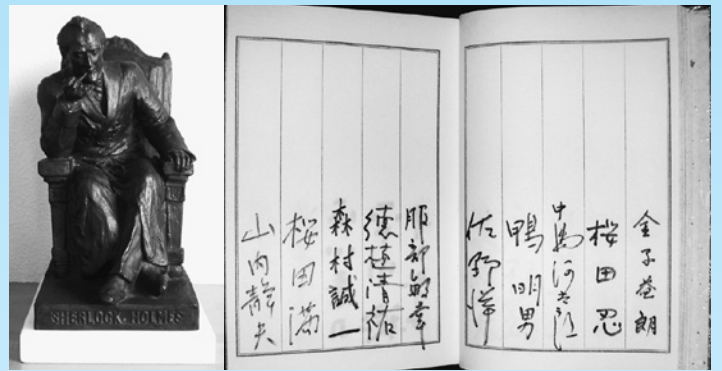 SHERLOCK HOLMES
金子益朗
桜田忍
中島河太郎
鴨明男
佐野洋
服部敏幸
森村誠一
桜田満
山内静夫